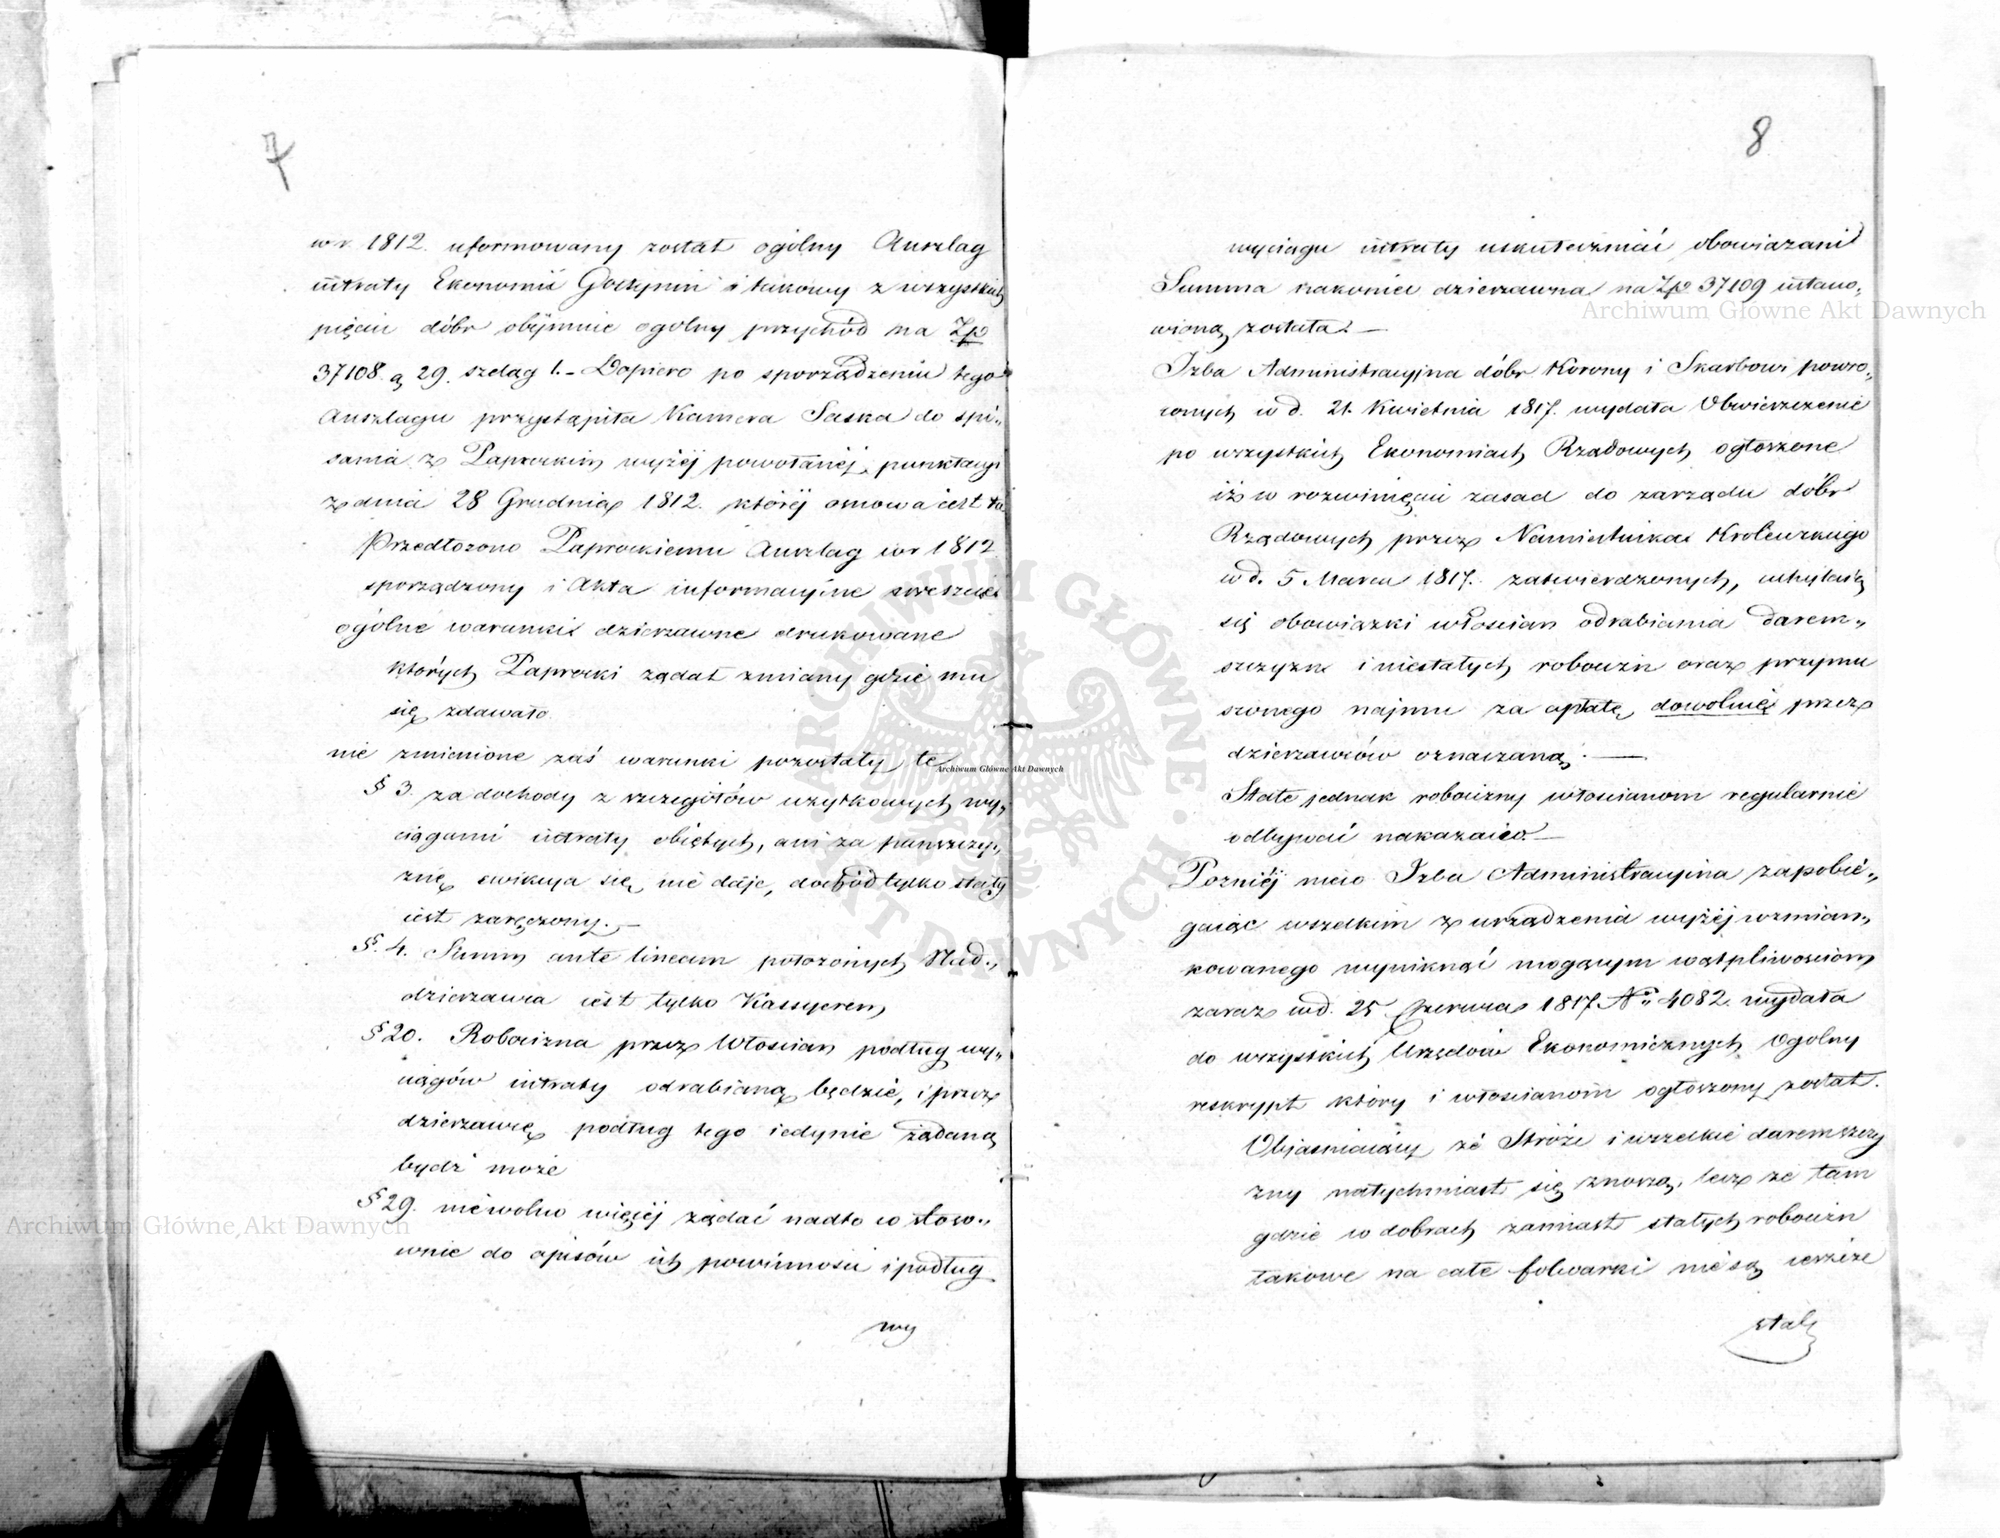 7
w r. 1812. uformowany został ogólny Anszlag
intraty Ekonomii Gostynin i takowy z wszystkich
pięciu dóbr obejmuie ogolny przychód na Zp
37108. g 29. szeląg 1. – Dopiero po sporządzeniu tego
Anszlagu przystąpiła Kamera Saska do spi„
sania z Paprockim wyżéj powołanéj punktacyi
z dnia 28 Grudnia 1812. któréj osnowa iest ta
Przedłożono Paprockiemu Anszlag w r 1812
sporządzony i Akta informacyine
ogólne warunki dzierzawne drukowane
których Paprocki ządał zmiany gdzie mu
się zdawało.
nie zmienione zaś warunki pozostały te
§ 3. za dochody z szczegółów uzytkowych wy„
ciągami intraty obiętych, ani za panszczy„
znę ewikcya się nie daje, dochód tylko stały
iest zaręczony. –
§. 4. Summ ante lineam położonych Nad„
dzierzawca iest tylko Kassyerem
§ 20. Robocizna przez Włoscian podług wy„
ciągów intraty odrabianą będzie, i przez
dzierzawcę podług tego iedynie żądaną
bydź może
§ 29. niewolno więcéj żądać nadto w stoso„
wnie do opisów ich powinnosci i podług
wy
8
wyciągu intraty uskuteczniać obowiązani
Summa nakoniec dzierzawna na Zp 37109 ustano„
wioną została. –
Izba Administracyina dóbr Korony i Skarbowi powró„
conych w d. 21. Kwietnia 1817. wydała Obwieszczenie
po wszystkich Ekonomiach Rządowych ogłoszone
iż w rozwinięciu zasad do zarządu dóbr
Rządowych przez Namiestnika Krolewskiego
w d. 5 Marca 1817. zatwierdzonych, uchylaią
się obowiązki włoscian odrabiania darem„
szczyzn i niestałych robocizn oraz przymu
szonego najmu za opłatę dowolnię przez
dzierzawców oznaczaną. –
Stałe jednak robocizny włoscianom regularnie
odbywać nakazaico. –
Pozniéj nieco Izba Administracyina zapobie„
gaiąc wszelkim z urządzenia wyżéj wzmian„
kowanego wyniknąć mogącym wątpliwosciom
zaraz w d. 25 Czerwca 1817. No 4082. wydała
do wszystkich Urzędów Ekonomicznych Ogolny
reskrypt który i włoscianom ogłoszony został.
Objasniaiący że Stróże i wszelkie daremszczy
zny natychmiast się znoszą, lecz że tam
gdzie w dobrach zamiast stałych robocizn
takowe na całe folwarki nie są ieszcze
stale
Archiwum Główne Akt Dawnych
Archiwum Główne Akt Dawnych
Archiwum Główne Akt Dawnych
ARCHIWUM GŁÓWNE · AKT DAWNYCH ·